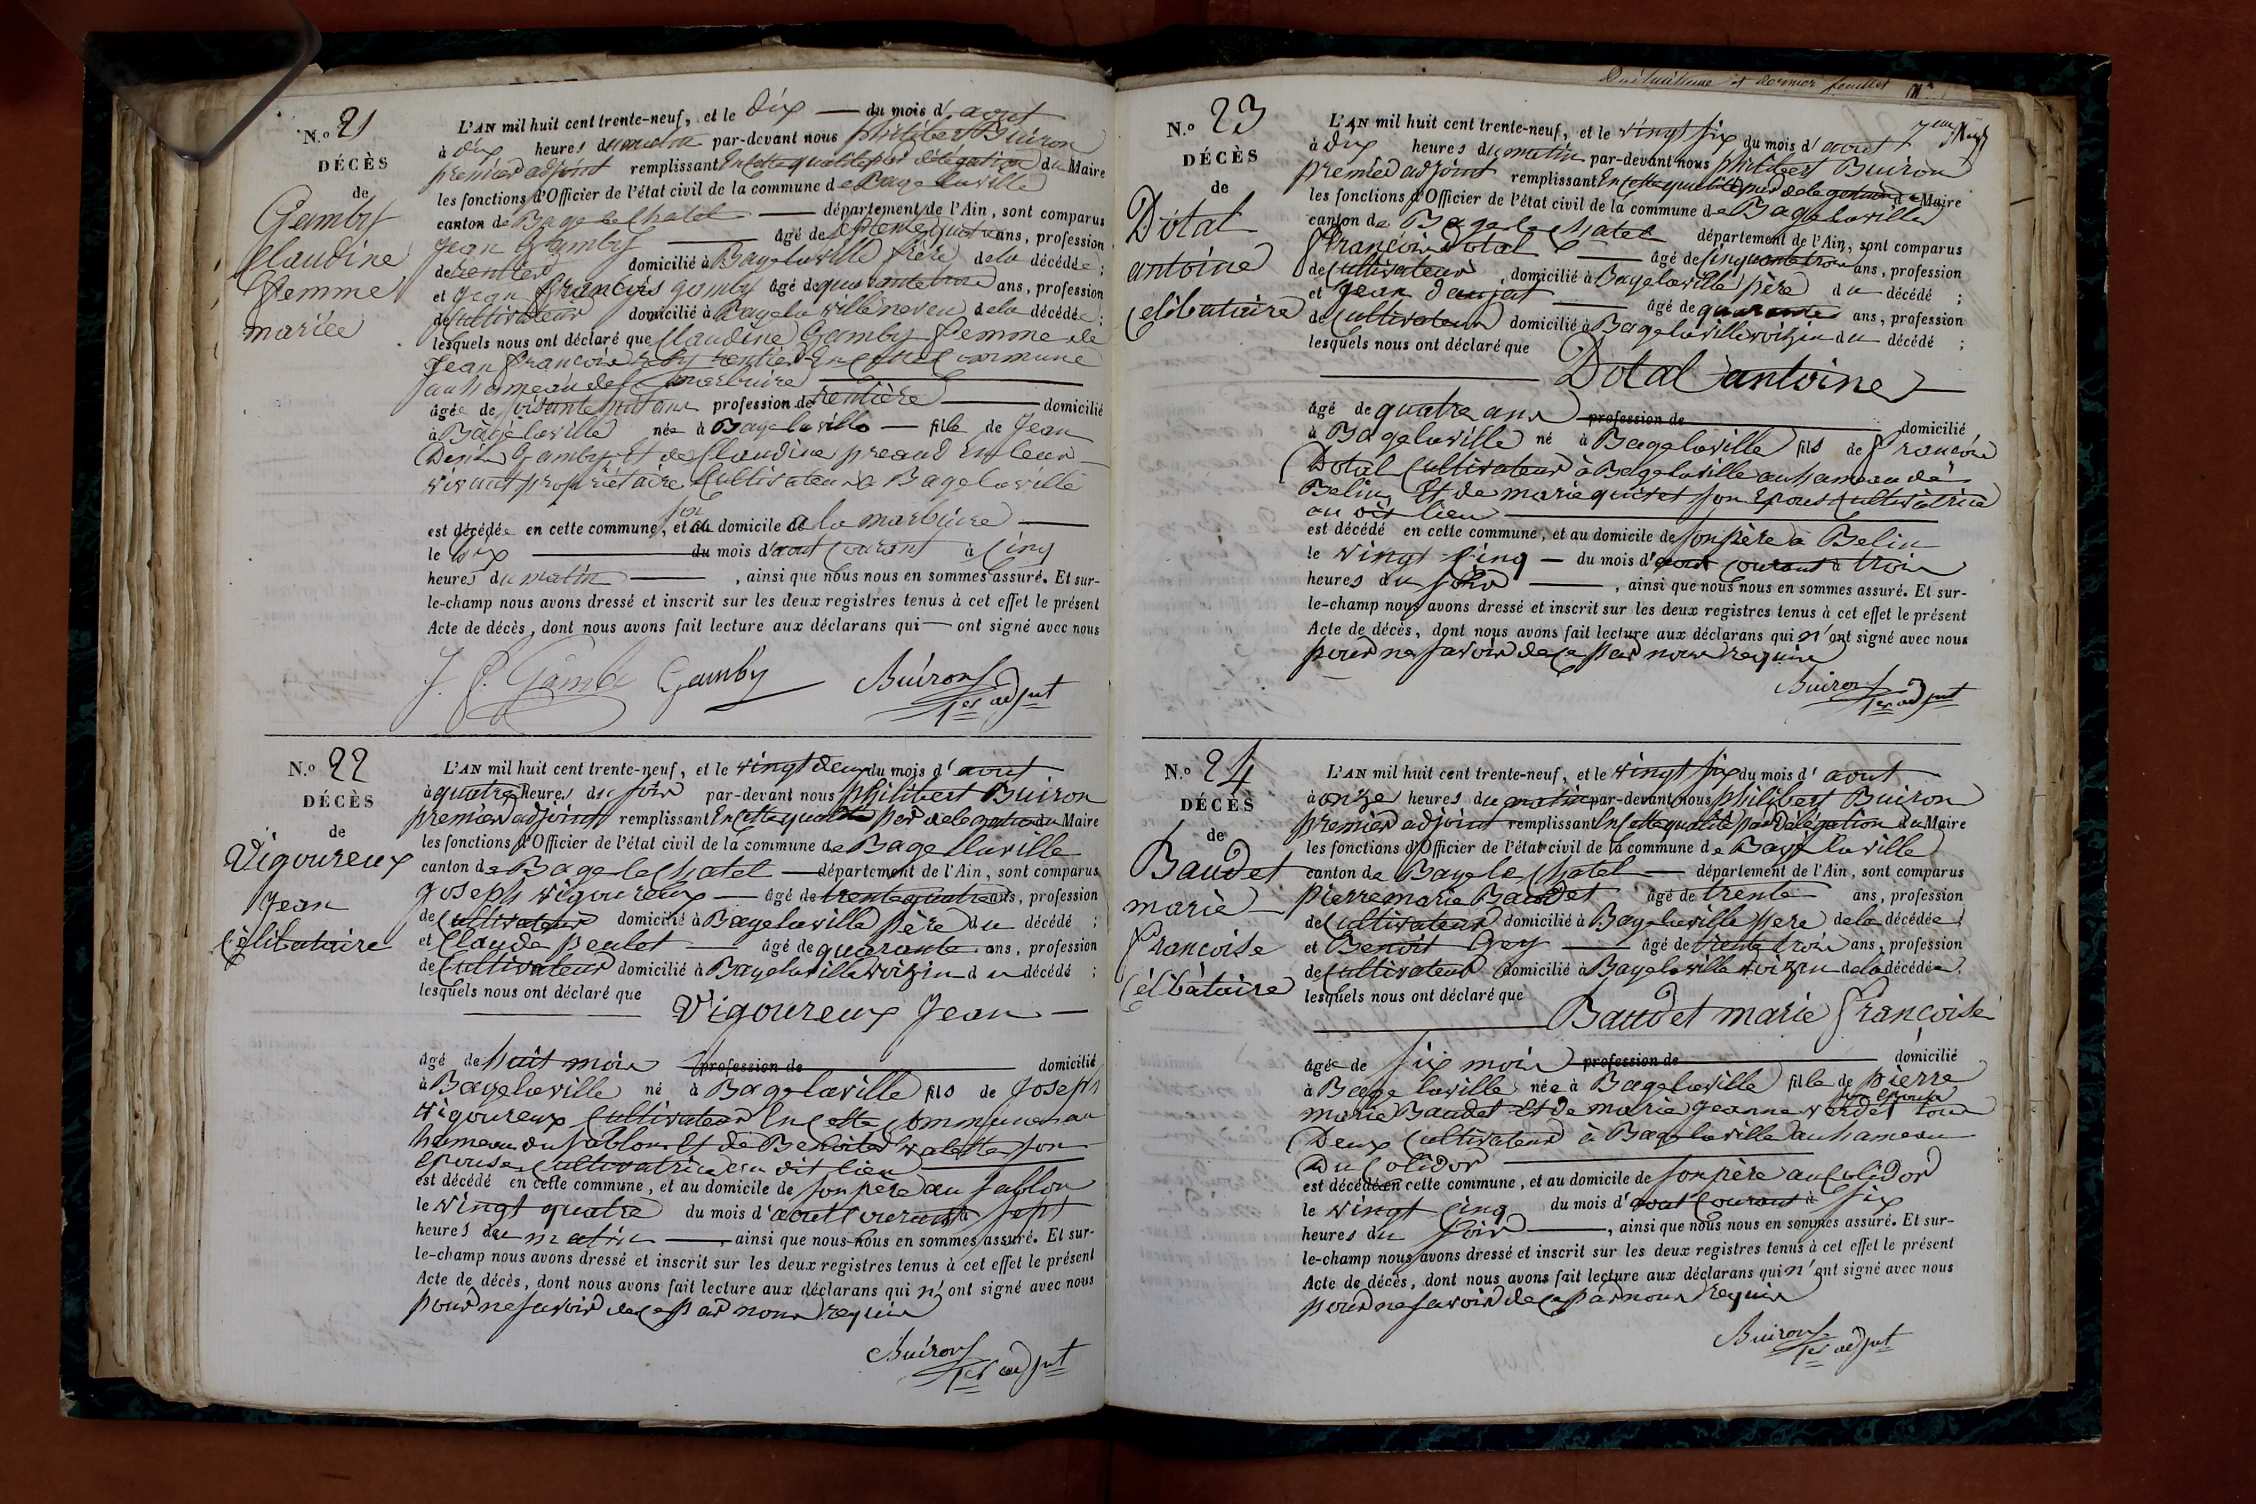 N.o 21
DÉCÈS
de
Gamby
Claudine
femme
mariée
L'AN mil huit cent trente-neuf, et le dix — du mois d'aout
à dix heures du matin par-devant nous philibert Buiron
premier adjoint remplissant En cette qualité par délégation du Maire
les fonctions d'Officier de l'état civil de la commune de Bagelaville
canton de Bage le Chatel — département de l'Ain, sont comparus
Jean Gamby — âgé de septente quatre ans, profession
de rentier domicilié à Bagelaville frère de la décédée ;
et Jean françois gamby âgé de quarante trois ans, profession
de Cultivateur domicilié à Bagelaville neveu de la décédée ;
lesquels nous ont déclaré que Claudine Gamby femme de
Jean françois rentier En Cette Commune
au hameau de la marbuire
âgée de soisante huit ans profession de rentière — domicilié
à Bagelaville née à Bagelaville — fille de Jean
Denis Gamby Et de Claudine preaud En leur
vivant propriétaire Cultivateur à Bagelaville
est décédée en cette commune, et au son domicile de a la marbuire —
le dix — du mois d'aout Courant à Cinq
heures du matin —, ainsi que nous nous en sommes assuré. Et sur-
le-champ nous avons dressé et inscrit sur les deux registres tenus à cet effet le présent
Acte de décès, dont nous avons fait lecture aux déclarans qui — ont signé avec nous
J. f. Gamby Gamby Buiron
1er adjnt
N.o 22
DÉCÈS
de
Vigoureux
Jean
Célibataire
L'AN mil huit cent trente-neuf, et le vingt deux du mois d'aout
à quatre heures du soir par-devant nous philibert Buiron
premier adjoint remplissant En cette qualité par delegation du Maire
les fonctions d'Officier de l'état civil de la commune de Bagelaville
canton de Bage le Chatel — département de l'Ain, sont comparus
Joseph vigoureux — âgé de trente quatre ans, profession
de Cultivateur domicilié à Bagelaville père du décédé ;
et Claude peulet — âgé de quarante ans, profession
de Cultivateur domicilié à Bagelaville voizin du décédé ;
lesquels nous ont déclaré que
Vigoureux Jean —
âgé de huit mois profession de — domicilié
à Bagelaville né à Bagelaville fils de Joseph
vigoureux Cultivateur En Cette Commune au
hameau du sablon Et de Benoite valette son
Epouse Cultivatrice au dit lieu —
est décédé en cette commune, et au domicile de son père au sablon
le vingt quatre du mois d'aout Courant à sept
heures du matin —, ainsi que nous nous en sommes assuré. Et sur-
le-champ nous avons dressé et inscrit sur les deux registres tenus à cet effet le présent
Acte de décès, dont nous avons fait lecture aux déclarans qui n'ont signé avec nous
pour ne savoir de ce par nous requis
Buiron
1er adjnt
Dixhuitième et dernier feuillet
N.o 23
DÉCÈS
de
Dotal
antoine
Célibataire
L'AN mil huit cent trente-neuf, et le vingt six du mois d'aout
à dix heures du matin par-devant nous philibert Buiron
premier adjoint remplissant En cette qualité par delegation du Maire
les fonctions d'Officier de l'état civil de la commune de Bagelaville
canton de Bage le Chatel département de l'Ain, sont comparus
françois Dotal — âgé de Cinquante trois ans, profession
de Cultivateur domicilié à Bagelaville père du décédé ;
et Jean daujat — âgé de quarante ans, profession
de Cultivateur domicilié à Bagelaville voizin du décédé ;
lesquels nous ont déclaré que
Dotal antoine —
âgé de quatre ans profession de — domicilié
à Bagelaville né à Bagelaville fils de françois
Dotal Cultivateur à Bagelaville au hameau de
Belin Et de marie quivet son Epouse Cultivatrice
au dit lieu —
est décédé en cette commune, et au domicile de son père à Belin
le vingt Cinq — du mois d'aout Courant à trois
heures du soir —, ainsi que nous nous en sommes assuré. Et sur-
le-champ nous avons dressé et inscrit sur les deux registres tenus à cet effet le présent
Acte de décès, dont nous avons fait lecture aux déclarans qui n'ont signé avec nous
pour ne savoir de ce par nous requis
Buiron
1er adjnt
N.o 24
DÉCÈS
de
Baudet
marie
françoise
Célibataire
L'AN mil huit cent trente-neuf, et le vingt six du mois d'aout
à onze heures du matin par-devant nous philibert Buiron
premier adjoint remplissant En cette qualité par Délégation du Maire
les fonctions d'Officier de l'état civil de la commune de Bagelaville
canton de Bage le Chatel — département de l'Ain, sont comparus
pierre marie Baudet âgé de trente ans, profession
de Cultivateur domicilié à Bagelaville pere de la décédée ;
et Benoit Grey — âgé de trente trois ans, profession
de Cultivateur domicilié à Bagelaville voizin de la décédée ;
lesquels nous ont déclaré que
Baudet marie françoise
âgée de six mois profession de — domicilié
à Bagelaville née à Bagelaville fille de pierre
marie Baudet Et de marie jeanne verdet son Epouse tous
Deux Cultivateur à Bagelaville au hameau
Du Colidor —
est décédée en cette commune, et au domicile de son père au Colidor
le vingt Cinq du mois d'aout Courant à six
heures du soir —, ainsi que nous nous en sommes assuré. Et sur-
le-champ nous avons dressé et inscrit sur les deux registres tenus à cet effet le présent
Acte de décès, dont nous avons fait lecture aux déclarans qui n'ont signé avec nous
pour ne savoir de ce par nous requis
Buiron
1er adjnt